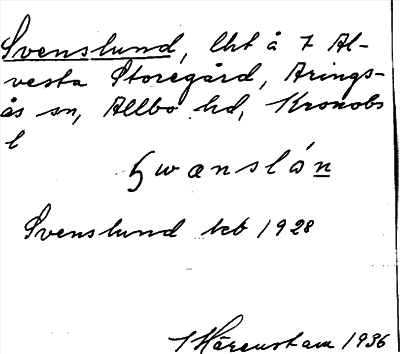 Svenslund, lht å 7 Al-
vesta Storegård, Arings-
ås sn, Allbo hd, Kronobs
l
Svenslund kb 1928
Härenstam 1936